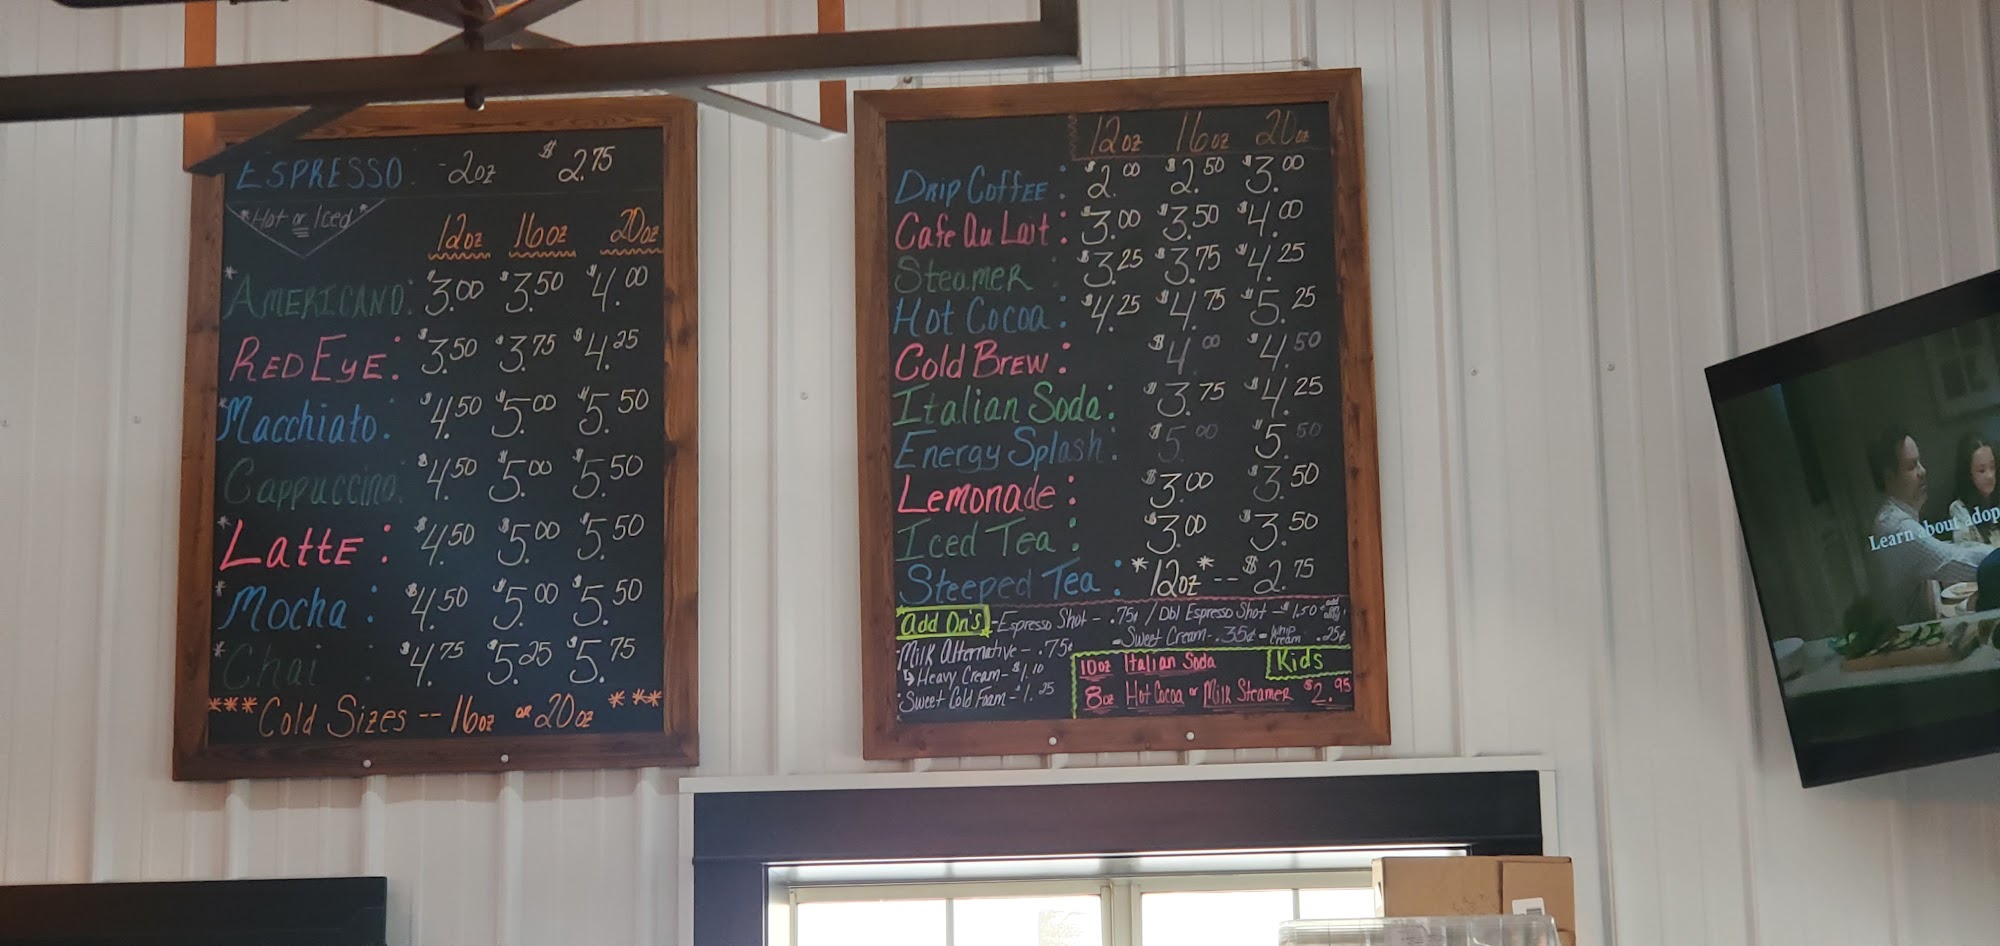 ESPRESSO -2oz $2.75
*Hot or Iced*
12oz 16oz 20oz
*AMERICANO: $3.00 $3.50 $4.00
RED EYE: $3.50 $3.75 $4.25
*Macchiato: $4.50 $5.00 $5.50
Cappuccino: $4.50 $5.00 $5.50
*LattE: $4.50 $5.00 $5.50
*Mocha: $4.50 $5.00 $5.50
*Chai: $4.75 $5.25 $5.75
***Cold Sizes -- 16oz or 20oz ***
12oz 16oz 20oz
Drip Coffee: $2.00 $2.50 $3.00
Cafe Au Lait: $3.00 $3.50 $4.00
Steamer: $3.25 $3.75 $4.25
Hot Cocoa: $4.25 $4.75 $5.25
Cold Brew: $4.00 $4.50
Italian Soda: $3.75 $4.25
Energy Splash: $5.00 $5.50
Lemonade: $3.00 $3.50
Iced Tea: $3.00 $3.50
Steeped Tea: *12oz* -- $2.75
Add On's - Espresso Shot - .75¢ / Dbl Espresso Shot - $1.50
- Sweet Cream - .35¢ - Whip Cream .25¢
Milk Alternative - .75¢
↳ Heavy Cream - $1.10
Sweet Cold Foam - $1.25
10oz Italian Soda Kids
8oz Hot Cocoa or Milk Steamer $2.95
Learn about adop